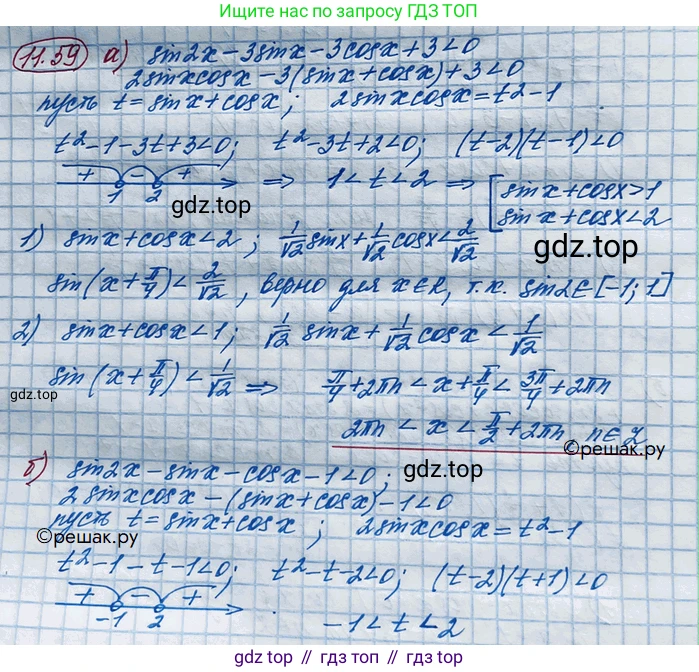 Нашли ответ по запросу ГДЗ ТОП
11.59 а) sin2x-3sinx-3cosx+3<0
2sinxcosx-3(sinx+cosx)+3<0
пусть t=sinx+cosx; 2sinxcosx=t²-1
t²-1-3t+3<0; t²-3t+2<0; (t-2)(t-1)<0
+ - + 1 2 ⇒ 1<t<2 ⇒ [sinx+cosx>1
sinx+cosx<2
gdz.top
1) sinx+cosx<2; 1/√2 sinx+1/√2 cosx<2/√2
gdz.top
sin(x+π/4)<2/√2, верно для x∈R, т.к. sin2∈[-1;1]
2) sinx+cosx<1; 1/√2 sinx+1/√2 cosx<1/√2
sin(x+π/4)<1/√2 ⇒ π/4+2πn<x+π/4<3π/4+2πn
gdz.top
2πn<x<π/2+2πn, n∈Z
©решак.ру
б) sin2x-sinx-cosx-1<0;
gdz.top
2sinxcosx-(sinx+cosx)-1<0
пусть t=sinx+cosx; 2sinxcosx=t²-1
©решак.ру
t²-1-t-1<0; t²-t-2<0; (t-2)(t+1)<0
+ - + -1 2 -1<t<2
gdz.top // gdz.top // gdz.top // gdz.top